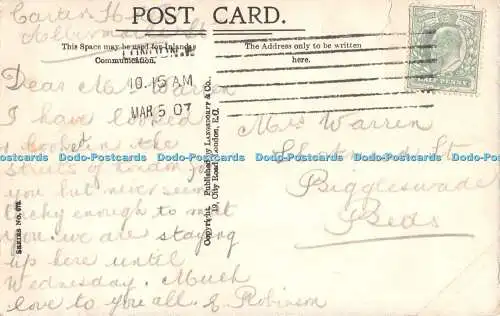 POST CARD.
This Space may be used for Inland Communication.
The Address only to be written here.
10.15 AM
MAR 5 07
Dear Mrs Warren
I have looked
in the
streets of London for
you but never seem
lucky enough to meet
you. we are staying
up here until
Wednesday. Much
love to you all. E. Robinson
Mrs Warren
St
Biggleswade
Beds
Copyright. Published by & Co.,
19, City Road, London, E.C.
SERIES No.
Dodo-Postcards Dodo-Postcards Dodo-Postcards Dodo-Postcards Dodo-Postcards Dodo-Postcards